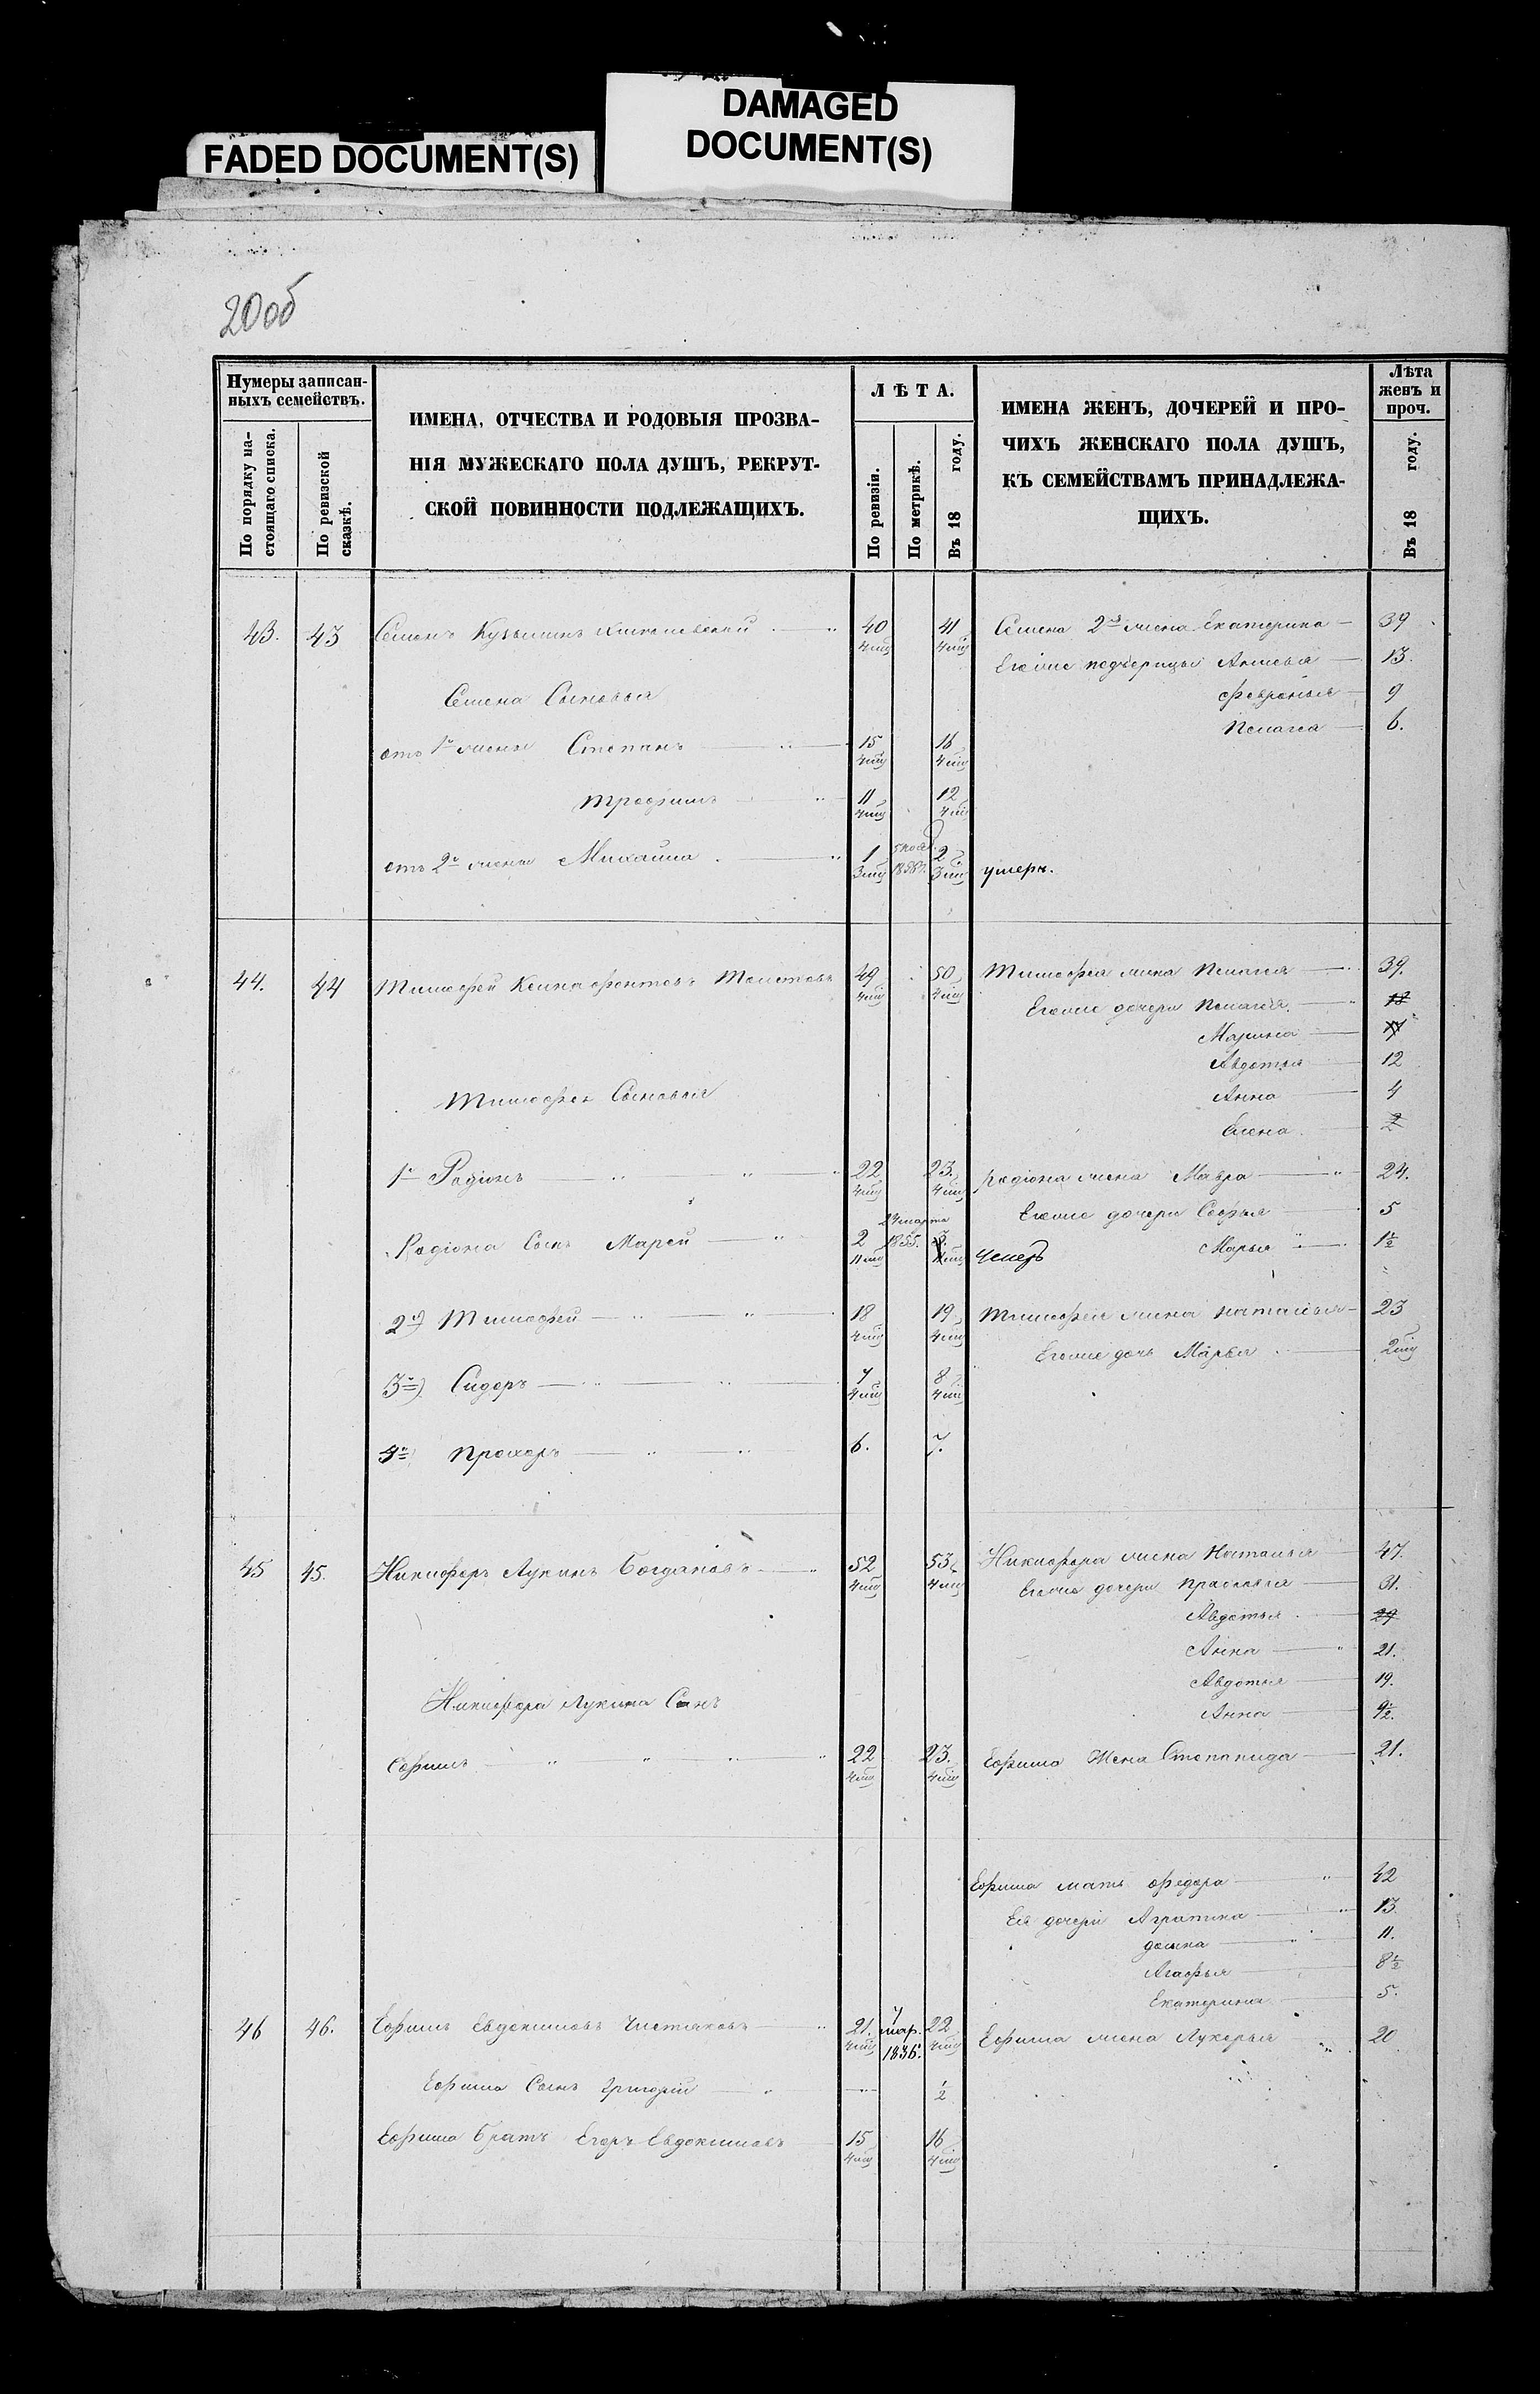 FADED DOCUMENT(S)
DAMAGED
DOCUMENT(S)
20 об
Нумеры записан-
ныхъ семействъ.
По порядку на-
стоящаго списка.
По ревизской
сказкѣ.
ИМЕНА, ОТЧЕСТВА И РОДОВЫЯ ПРОЗВА-
НІЯ МУЖЕСКАГО ПОЛА ДУШЪ, РЕКРУТ-
СКОЙ ПОВИННОСТИ ПОДЛЕЖАЩИХЪ.
ЛѢТА.
По ревизіи.
По метрикѣ.
Въ 18 году.
ИМЕНА ЖЕНЪ, ДОЧЕРЕЙ И ПРО-
ЧИХЪ ЖЕНСКАГО ПОЛА ДУШЪ,
КЪ СЕМЕЙСТВАМЪ ПРИНАДЛЕЖА-
ЩИХЪ.
Лѣта
женъ и
проч.
Въ 18 году.
43. 43 Семенъ Кузьминъ 40 41 Семена 2й жена Екатерина 39
4 мц 4 мц
Его же падчерицы 13.
Февронья 9
Семена Сыновья
Пелагея 6.
отъ 1й жены Степанъ 15 16
4 мц 4 мц
Трофимъ 11 12
4 мц 4 мц
отъ 2й жены Михайла 1 2
3 мц 1858. 3 мц умеръ.
44. 44 Тимофей Ксенофонтовъ 49 50 Тимофея жена Пелагея 39.
4 мц 4 мц
Его же дочери Пелагея
Марина
Авдотья 12
Тимофея Сыновья
Анна 4
Елена 2
1й Радіонъ 22 23. Радіона жена Мавра 24.
4 мц 4 мц
Его же дочери Софья 5
24 марта
Радіона Сынъ Марей 2 1855. Марья 1½
11 мц
2й) Тимофей 18 19 Тимофея жена Наталья 23
4 мц 4 мц
Его же дочь Марья 2 мц
3й) Сидоръ 7 8
4 мц 4 мц
4й) Прохоръ 6. 7.
45 45. Никифоръ Лукинъ Богдановъ 52 53 Никифора жена Наталья 47.
4 мц 4 мц
Его же дочери Прасковья 31.
Авдотья 29
Анна 21.
Авдотья 19.
Никифора Лукина Сынъ
Анна 9½.
Ефимъ 22 23. Ефима Жена Степанида 21.
4 мц 4 мц
Ефима мать Федора 42
Ея дочери Аграпина 13.
Домна 11.
Агафья 8½
Екатерина 5.
46 46. Ефимъ Евдокимовъ Чистяковъ 21. 7 мар. 22 Ефима жена Лукерья 20
4 мц 1836. 4 мц
Ефима Сынъ Григорій ½
Ефима братъ Егоръ Евдокимовъ 15 16
4 мц 4 мц